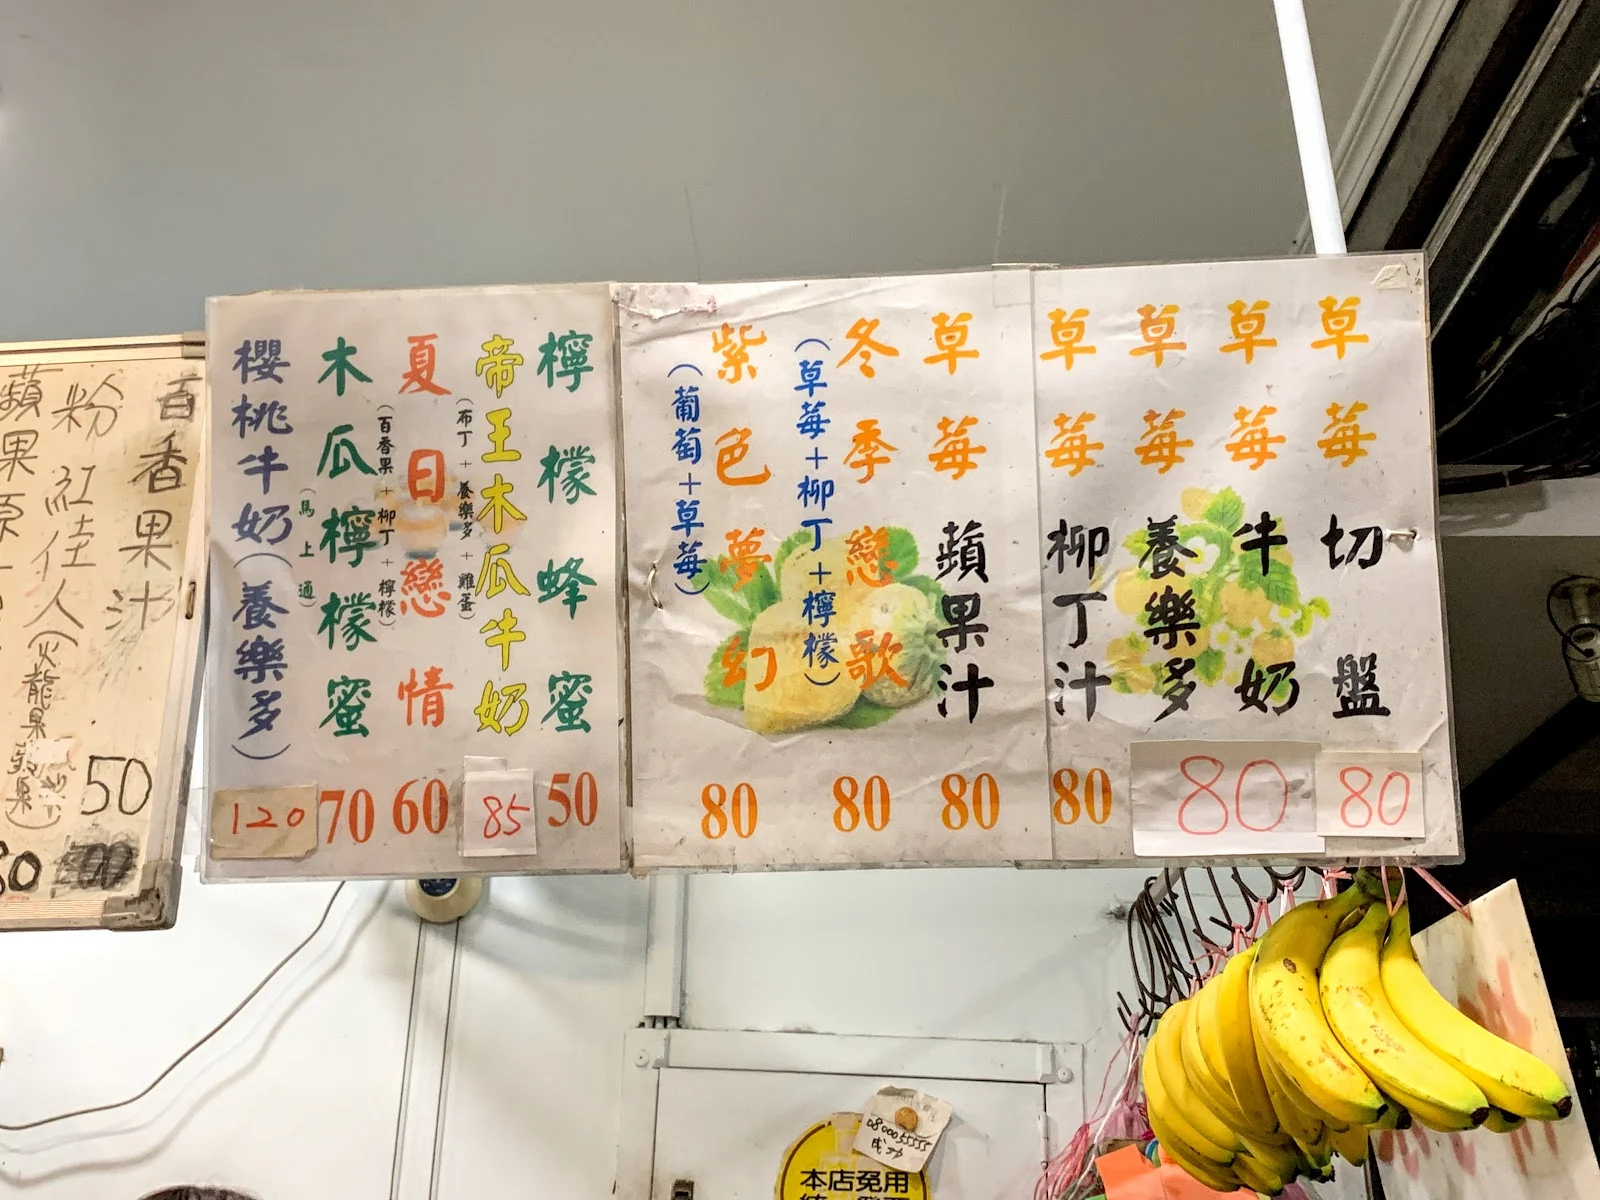 草莓切盤 80
草莓牛奶 80
草莓養樂多
草莓柳丁汁 80
草莓蘋果汁 80
冬季戀歌 80
(草莓+柳丁+檸檬)
紫色夢幻 80
(葡萄+草莓)
檸檬蜂蜜 50
帝王木瓜牛奶 85
(布丁+養樂多+雞蛋)
夏日戀情 60
(百香果+柳丁+檸檬)
木瓜檸檬蜜 70
(馬上通)
櫻桃牛奶(養樂多) 120
百香果汁 50
粉紅佳人(火龍果
蘋果原
本店免用
0800055555